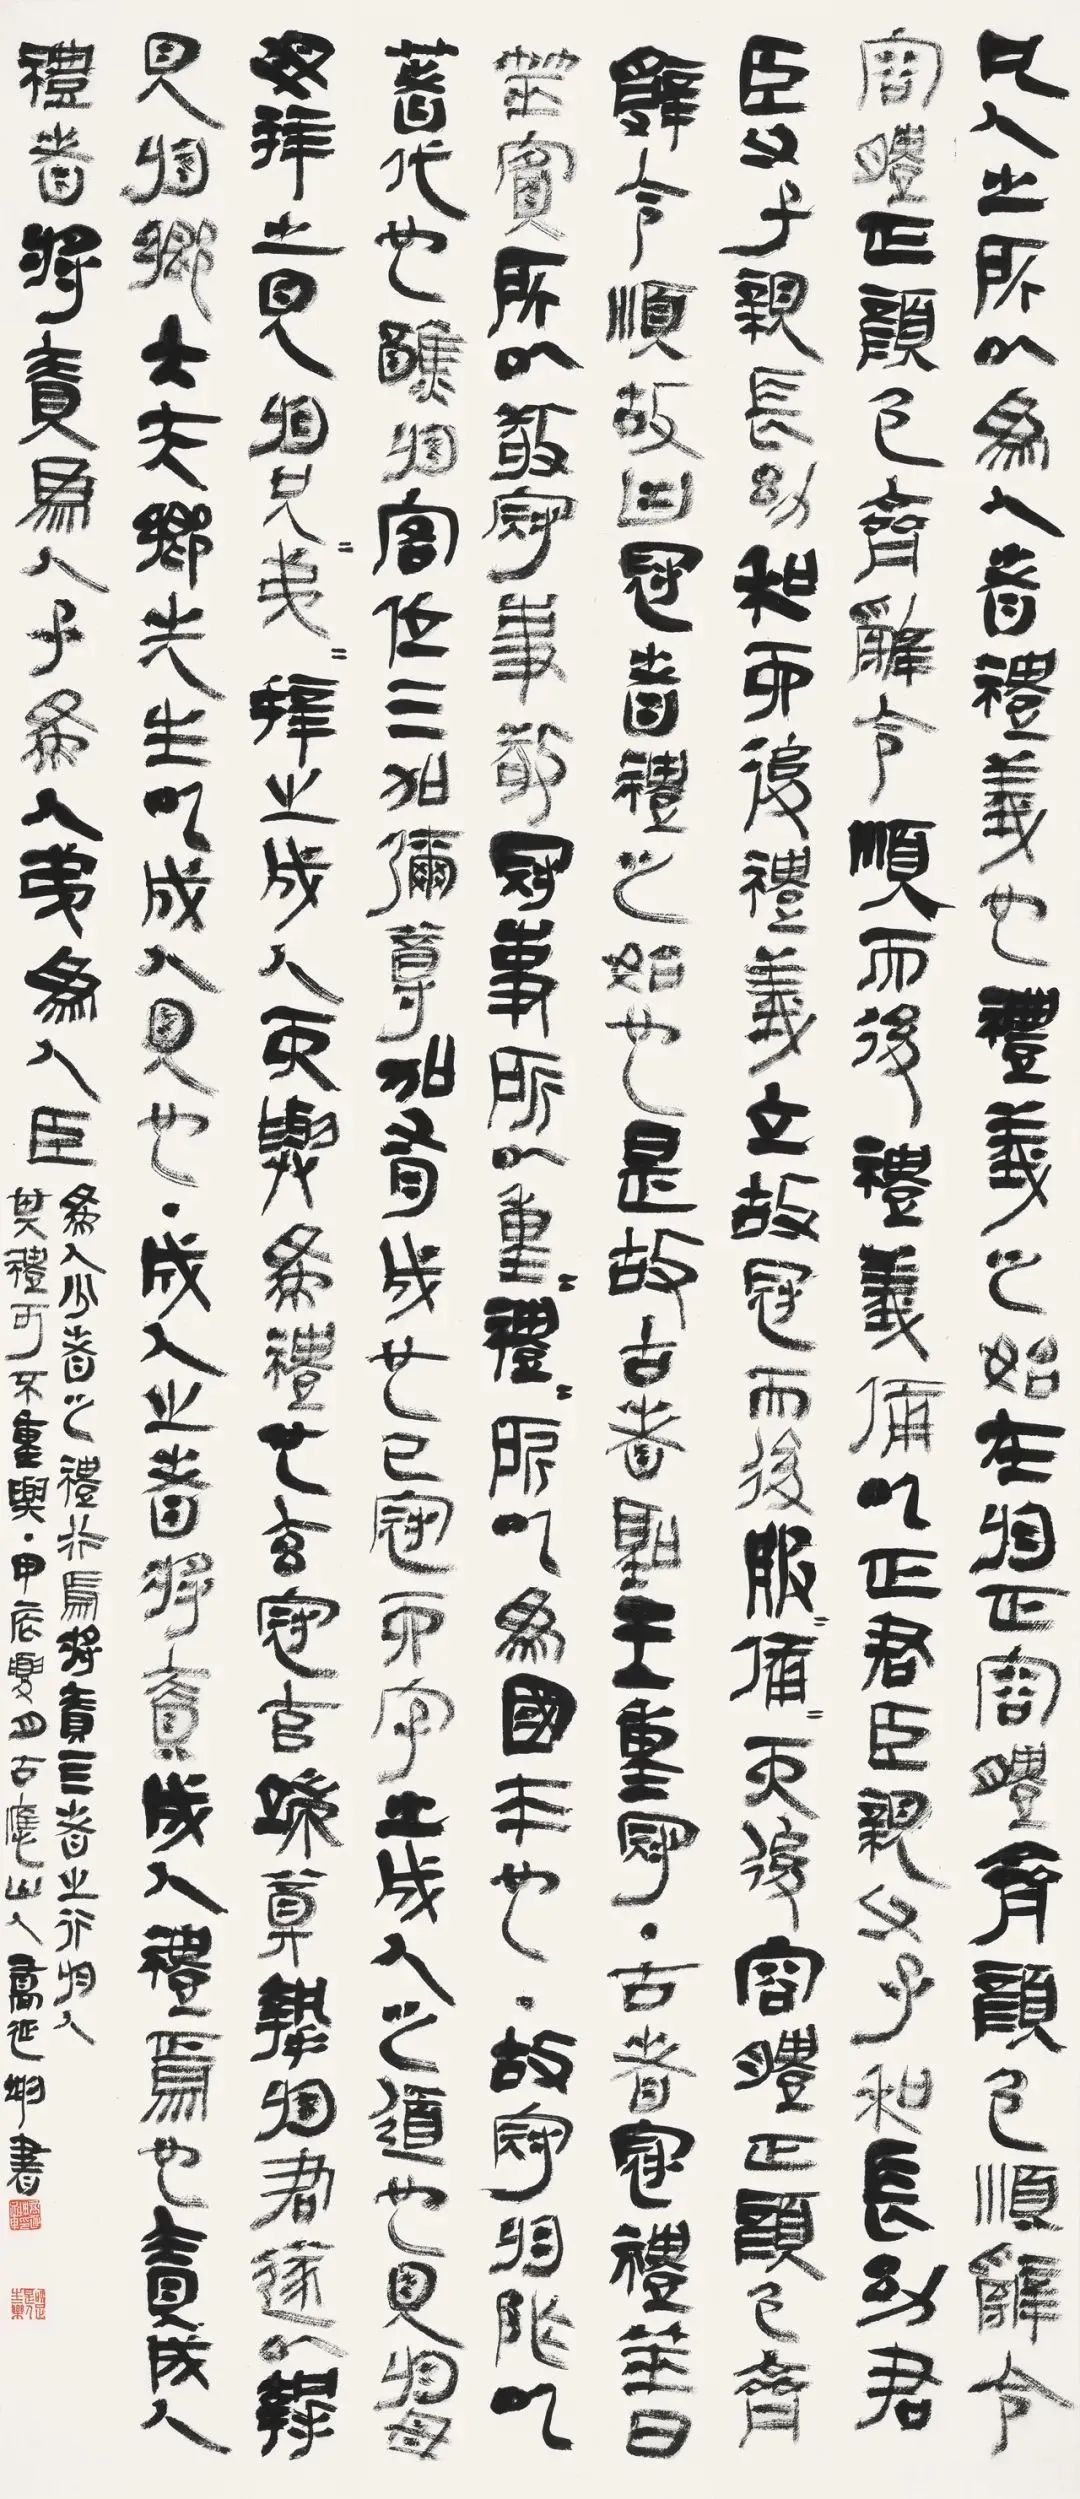 凡人之所以為人者禮義也禮義之始在於正容體齊顏色順辭令
容體正顏色齊辭令順而後禮義備以正君臣親父子和長幼君
臣父子親長幼和而後禮義立故冠而後服=備=而後容體正顏色齊
辭令順故曰冠者禮之始也是故古者聖王重冠·古者冠禮筮日
筮賓所以敬冠事敬冠事所以重=禮=所以為國本也·故冠於阼以
著代也醮於客位三加彌尊加有成也已冠而字之成人之道也見於母
母拜之見於兄=弟=拜之成人而與為禮也玄冠玄端奠摯於君遂以摯
見於鄉大夫鄉先生以成人見也·成人之者將責成人禮焉也責成人
禮者將責焉人子為人弟為人臣
為人少者之禮行焉將責亖者之行於人
其禮可不重與·甲辰夏月古應山人高延書